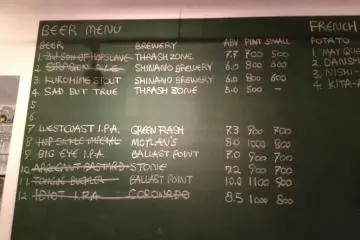 BEER MENU
FRENCH
BEER BREWERY ABV PINT SMALL
POTATO
1. DJ SON OF HOPSLAVE THRASH ZONE 7.7 700 500
1. MAY QUE
2. DRAGON ALE SHINANO BREWERY 6.0 800 600
2. DANSH
3. KUROHIME STOUT SHINANO BREWERY 6.0 800 600
3. NISHI
4. SAD BUT TRUE THRASH ZONE 500 -
4. KITA-A
5.
6.
7. WESTCOAST I.P.A. GREEN FLASH 7.3 900 700
8. HOP SICKLE IMPERIAL MOYLAN'S 9.0 1000 800
9. BIG EYE I.P.A. BALLAST POINT 7.0 900 700
10. ARROGANT BASTARD STONE 7.2 900 700
11. TONGUE BUCKLER BALLAST POINT 10.0 1100 900
12. IDIOT I.P.A CORONADO 8.5 1000 800